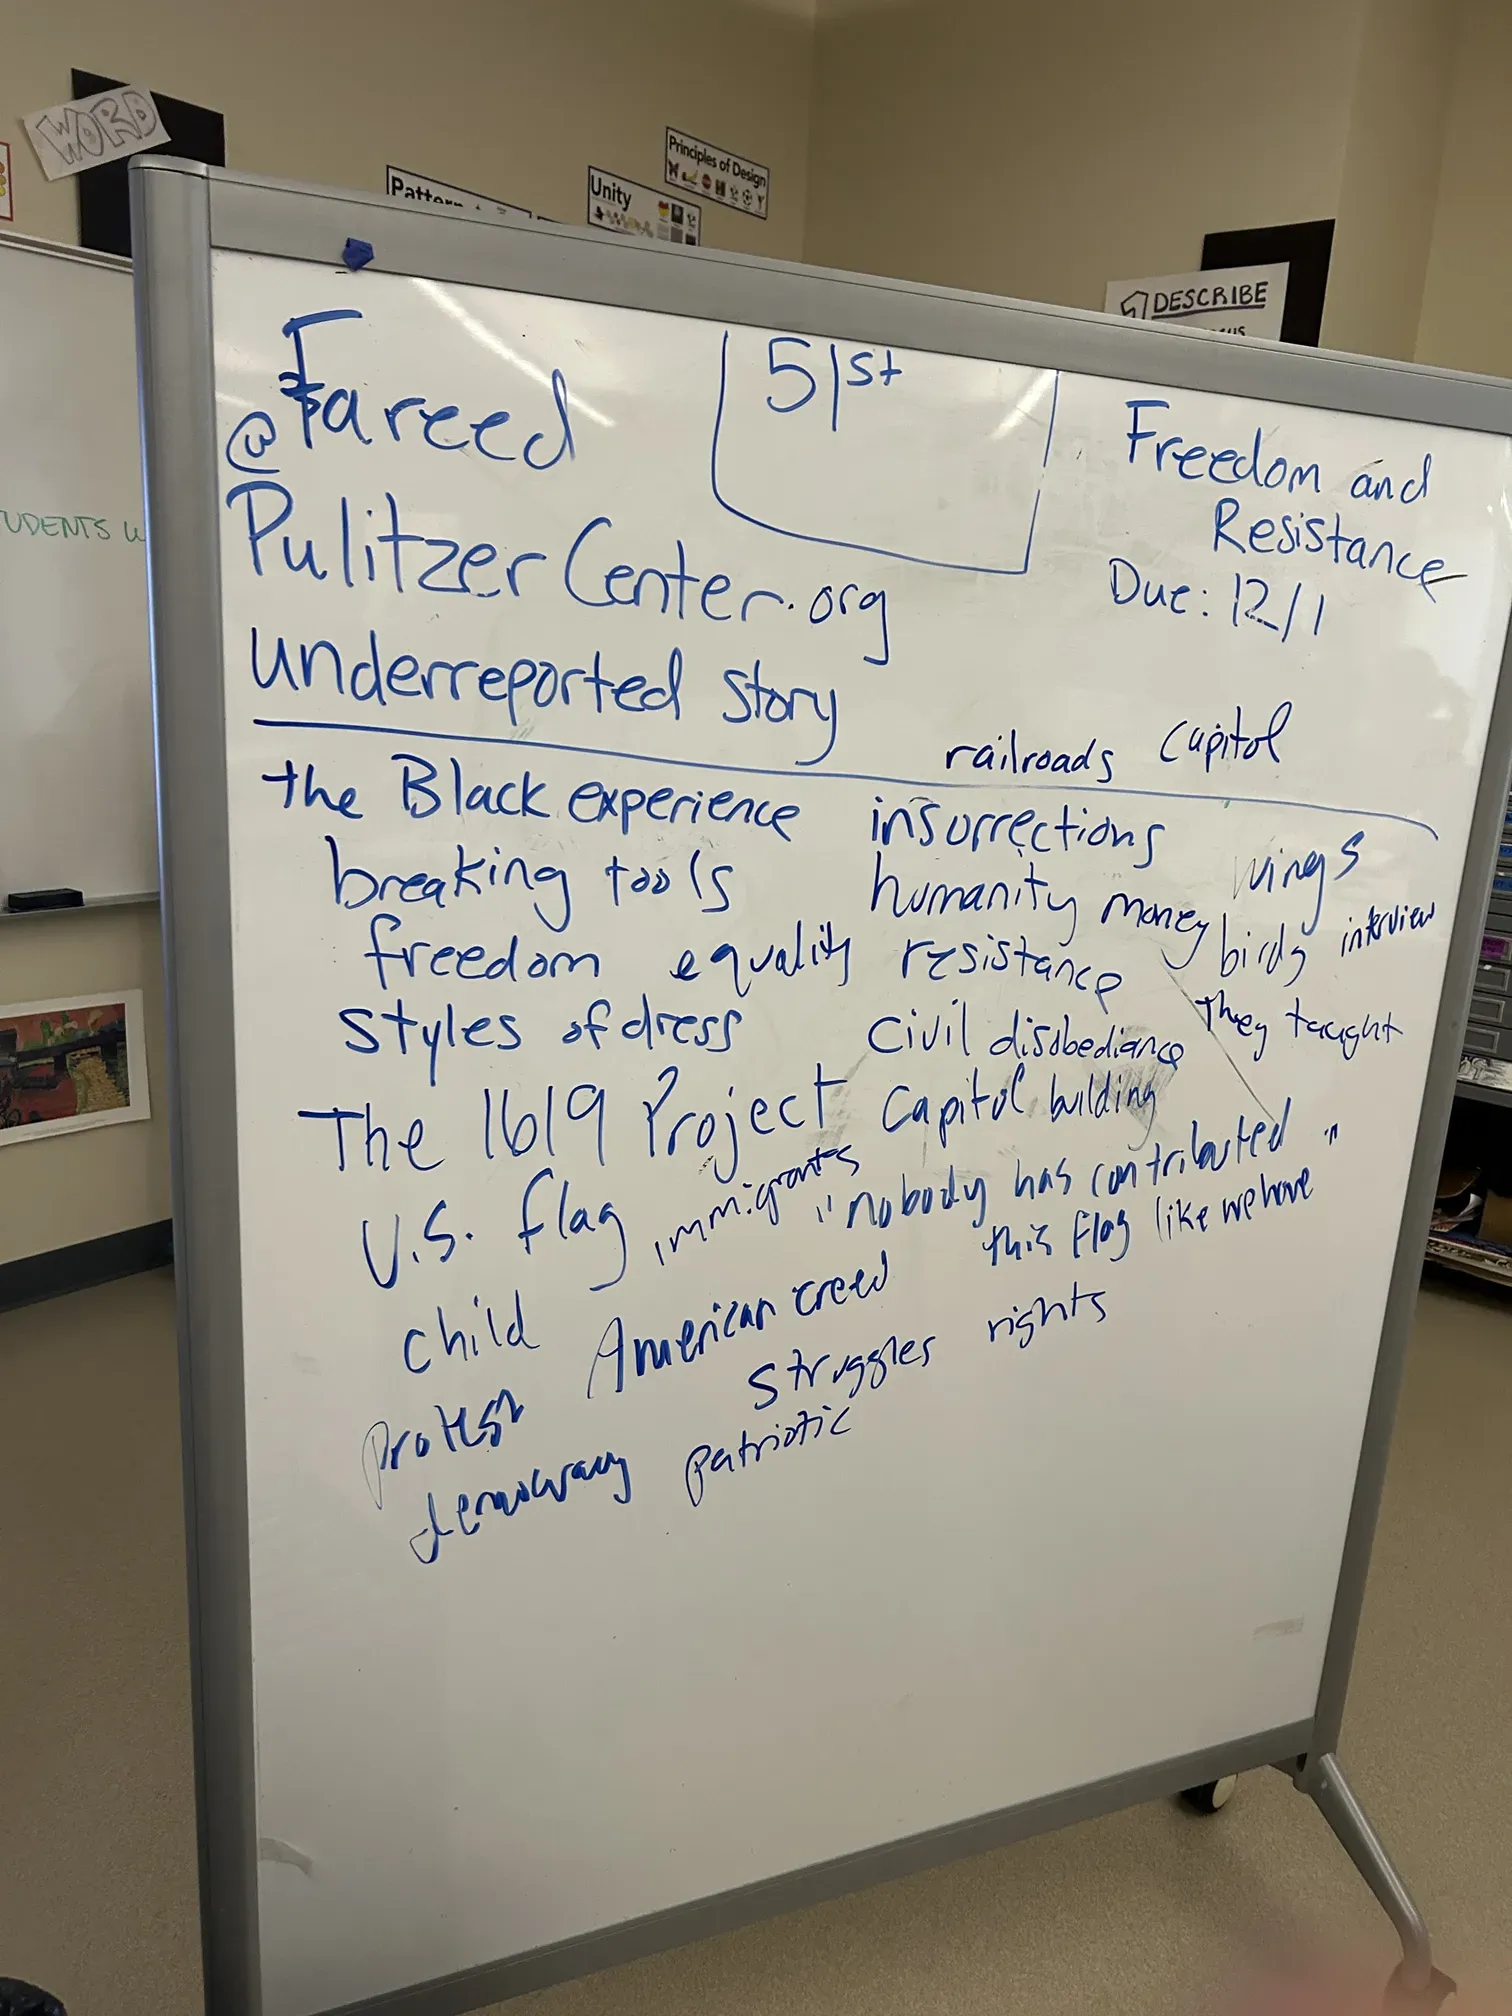 WORD
Pattern
Unity
Principles of Design
DESCRIBE
UDENTS W
Fareed
@
PulitzerCenter.org
underreported story
51st
Freedom and
Resistance
Due: 12/1
railroads capitol
the Black experience
breaking tools
freedom equality
styles of dress
The 1619 Project
U.S. flag immigrants
child American creed
protest struggles rights
democracy patriotic
insurrections
humanity money
resistance
civil disobediance
capitol building
wings
birds interview
They taught
"nobody has contributed
this flag like we have"